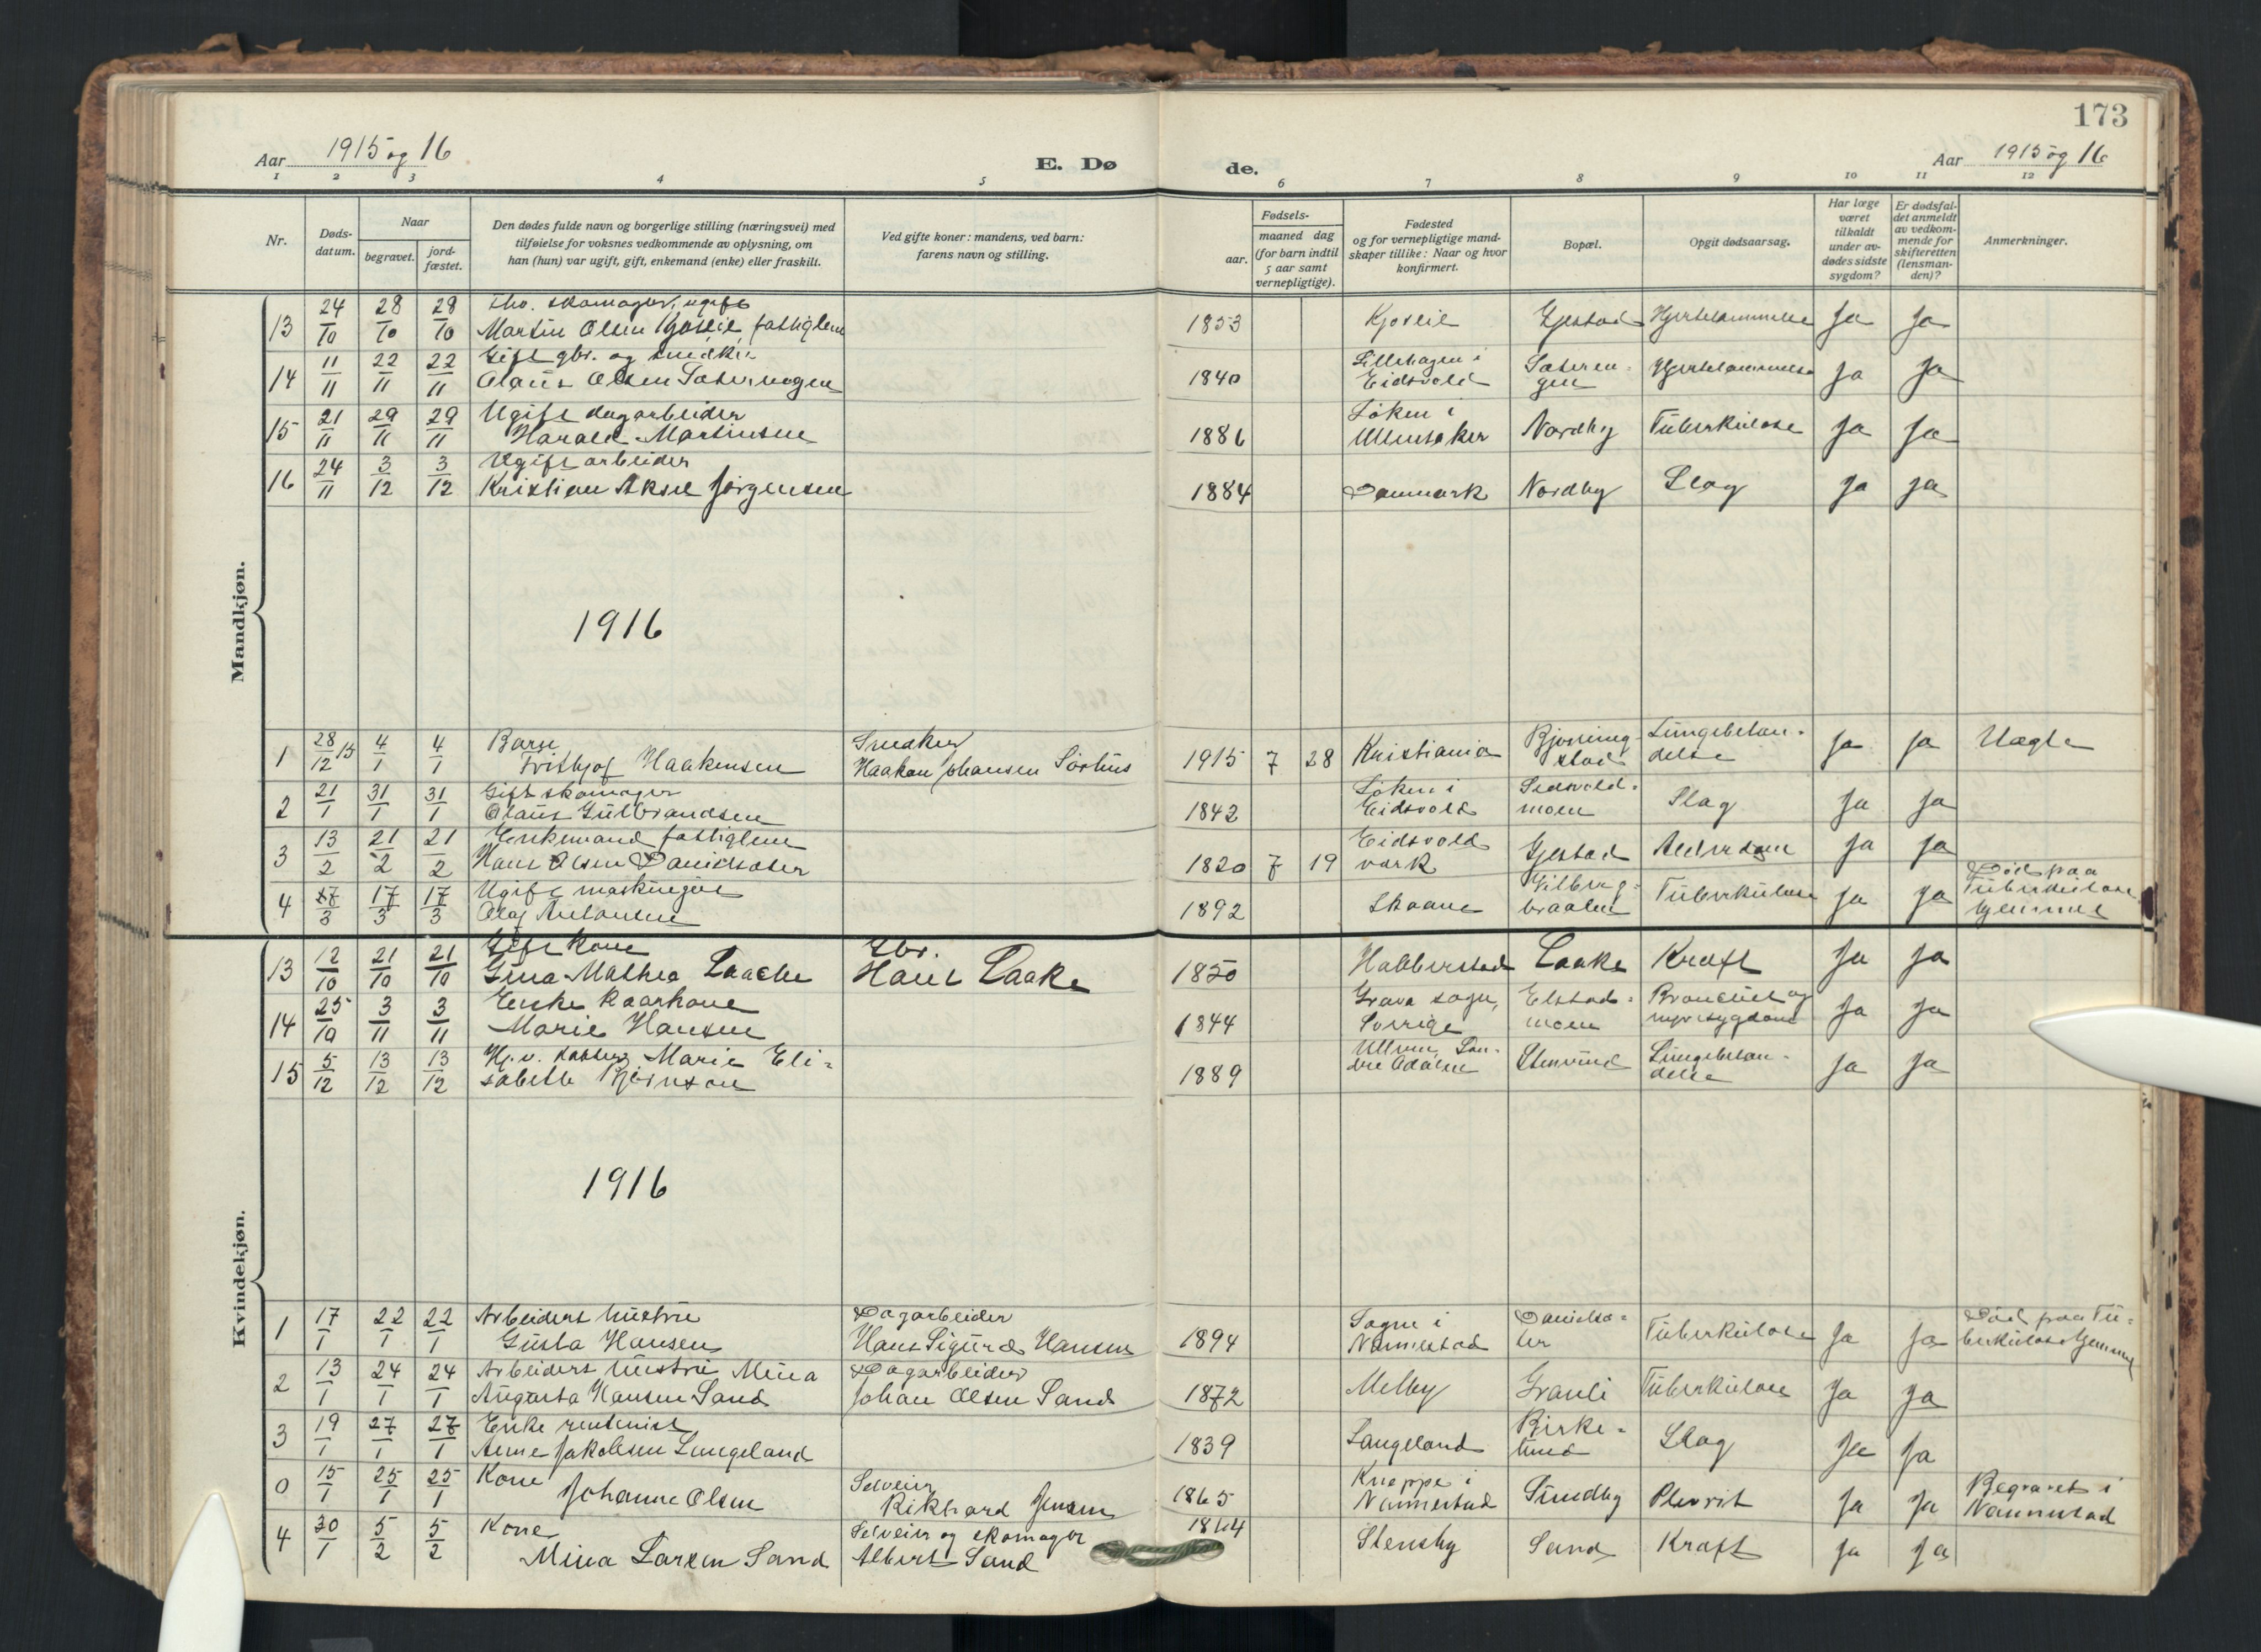 173
Aar 1915 og 16
E. Dø
de.
Aar 1915 og 16
1 2 3 4 5 6 7 8 9 10 11 12
Nr.
Døds-
datum.
Naar
begravet.
jord-
fæstet.
Den dødes fulde navn og borgerlige stilling (næringsvei) med
tilføielse for voksnes vedkommende av oplysning, om
han (hun) var ugift, gift, enkemand (enke) eller fraskilt.
Ved gifte koner: mandens, ved barn:
farens navn og stilling.
Fødsels-
aar.
maaned dag
(for barn indtil
5 aar samt
vernepligtige).
Fødested
og for vernepligtige mand-
skaper tillike: Naar og hvor
konfirmert.
Bopæl.
Opgit dødsaarsag.
Har læge
været
tilkaldt
under av-
dødes sidste
sygdom?
Er dødsfal-
det anmeldt
av vedkom-
mende for
skifteretten
(lensman-
den)?
Anmerkninger.
Mandkjøn.
13 24/10 28/10 28/10 skomager, ugift
Martin Olsen fattiglem 1853 Gjestad Ja Ja
14 11/11 22/11 22/11 Gift gbr. og snedker
Olaus Olsen 1840 Lillehagen i
Eidsvold Ja Ja
15 21/11 29/11 29/11 Ugift dagarbeider
Harald Martinsen 1886 Løken i
Ullensaker Nordby Tuberkulose Ja Ja
16 24/11 3/12 3/12 Ugift arbeider
Kristian Aksel Jørgensen 1884 Danmark Nordby Slag Ja Ja
1916
1 28/12 15 4/1 4/1 Barn
Fritjof Haakensen Snedker
Haakon Johansen Sørhus 1915 7 28 Kristiania Bjørning-
stad Lungebetæn-
delse Ja Ja Uægte
2 21/1 31/1 31/1 Gift skomager
Olaus Gulbrandsen 1842 Løken i
Eidsvold moen Slag Ja Ja
3 13/2 21/2 21/2 Enkemand fattiglem
Hans Olsen Danielsæter 1820 7 19 Eidsvold
værk Gjestad Alderdom Ja Ja
4 17/3 17/3 Ugift
Olaf Antonsen 1892 Skaane Tuberkulose Ja Ja Død paa
Tuberkulose
hjemmet
Kvindekjøn.
13 12/10 21/10 21/10 Gift kone
Gina Mathea Laache Gbr.
Hans Laake 1850 Habberstad Laake Kræft Ja Ja
14 25/10 3/11 3/11 Enke kaarkone
Marie Hansen 1844 Grava sogn,
Sverige Elstad-
moen og
nyresygdom Ja Ja
15 5/12 13/12 13/12 Marie Eli-
sabeth Bjørnson 1889 Stensrud Lungebetæn-
delse Ja Ja
1916
1 17/1 22/1 22/1 Arbeiders hustru
Gusta Hansen Dagarbeider
Hans Sigurd Hansen 1894 Sogn i
Nannestad Danielsæ-
ter Tuberkulose Ja Ja Død paa Tu-
berkulosehjemmet
2 13/1 24/1 24/1 Arbeiders hustru Mina
Augusta Hansen Sand Dagarbeider
Johan Olsen Sand 1872 Melby Granli Tuberkulose Ja Ja
3 19/1 27/1 27/1 Enke rentenist
Anne Jakobsen Langeland 1839 Langeland Birke-
lund Slag Ja Ja
0 15/1 25/1 25/1 Kone
Johanne Olsen Selveier
Rikhard Jensen 1865 Kneppe i
Nannestad Sundby Plevrit Ja Ja Begravet i
Nannestad
4 30/1 5/2 5/2 Kone
Mina Larsen Sand Selveier og skomager
Albert Sand 1844 Stensby Sand Kræft Ja Ja